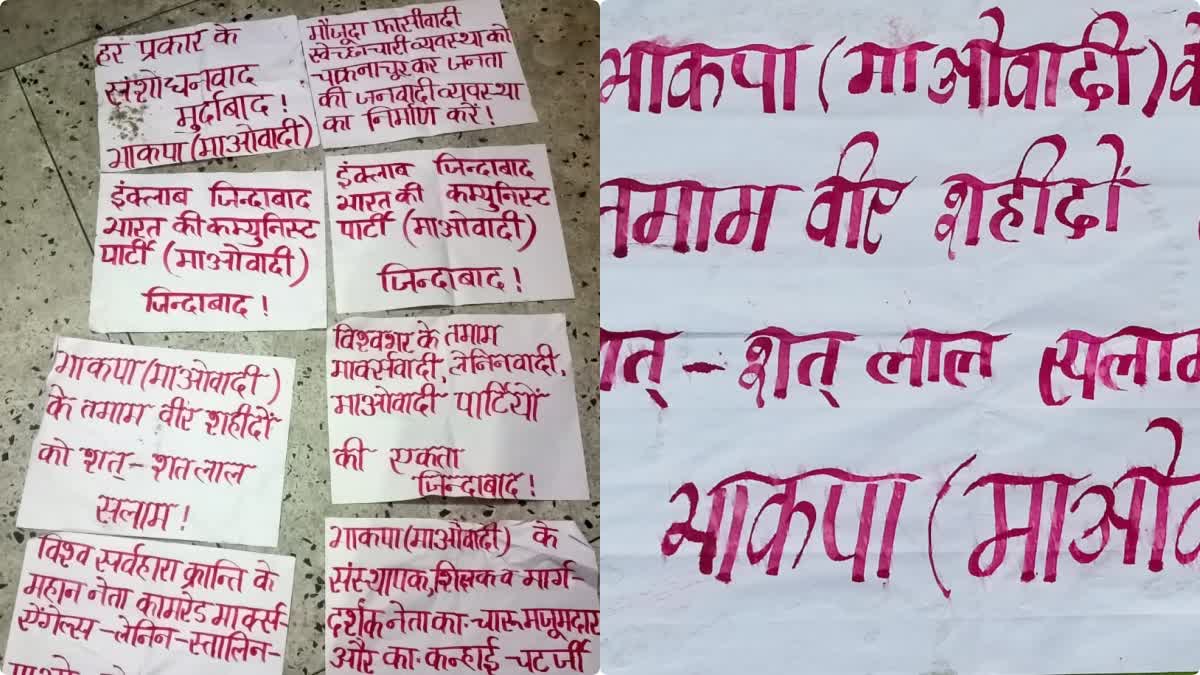 हर प्रकार के
संशोधनवाद
मुर्दाबाद !
भाकपा (माओवादी)
मौजूदा फासीवादी
स्वेच्छाचारी व्यवस्था को
चकनाचूर कर जनता
की जनवादी व्यवस्था
का निर्माण करें !
इंक्लाब जिन्दाबाद
भारत की कम्युनिस्ट
पार्टी (माओवादी)
जिन्दाबाद !
इंक्लाब जिन्दाबाद
भारत की कम्युनिस्ट
पार्टी (माओवादी)
जिन्दाबाद !
भाकपा (माओवादी)
के तमाम वीर शहीदों
को शत् - शत लाल
सलाम !
विश्वभर के तमाम
मार्क्सवादी, लेनिनवादी,
माओवादी पार्टियों
की एकता
जिन्दाबाद !
विश्व सर्वहारा क्रान्ति के
महान नेता कामरेड मार्क्स-
एंगेल्स - लेनिन - स्तालिन -
भाकपा (माओवादी) के
संस्थापक, शिक्षक व मार्ग-
दर्शक नेता का. चारू मजूमदार
और का. कन्हाई चटर्जी
भाकपा (माओवादी) के
तमाम वीर शहीदों
शत् - शत् लाल सलाम
भाकपा (माओ